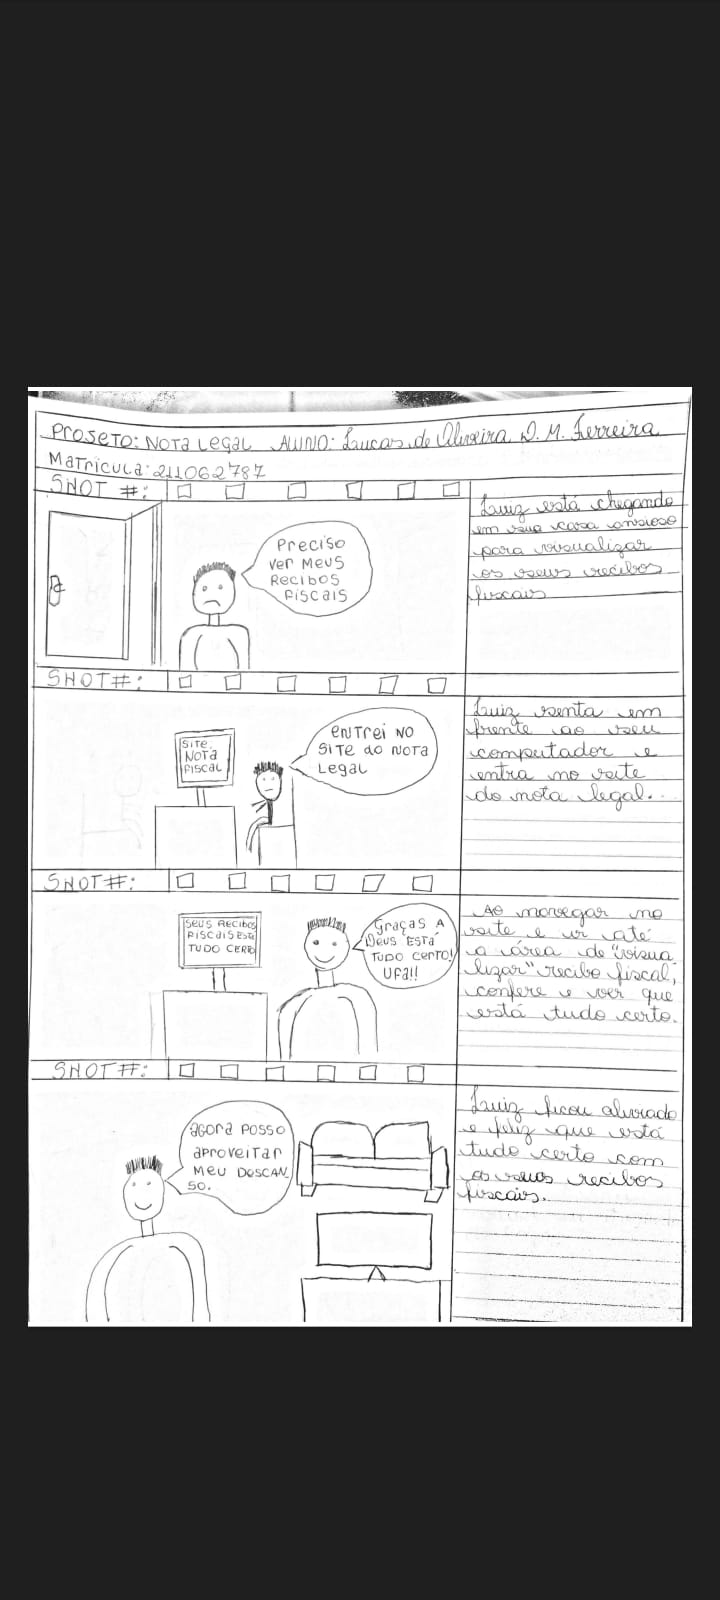 Projeto: Nota Legal Aluno: Lucas de Oliveira D. M. Ferreira
Matricula: 211062787
SHOT #:
Preciso
ver meus
recibos
fiscais
Luiz está chegando
em sua casa ansioso
para visualizar
os seus recibos
fiscais
SHOT#:
Site
Nota
Fiscal
entrei no
site do nota
legal
Luiz senta em
frente ao seu
computador e
entra no site
do nota legal.
SHOT#:
Seus recibos
fiscais está
tudo certo
Graças a
Deus está
tudo certo!
Ufa!!
Ao navegar no
site e ir até
a área de "visua
lizar" recibo fiscal,
confere e ver que
está tudo certo.
SHOT#:
agora posso
aproveitar
meu descan-
so.
Luiz ficou aliviado
e feliz que está
tudo certo com
os seus recibos
fiscais.